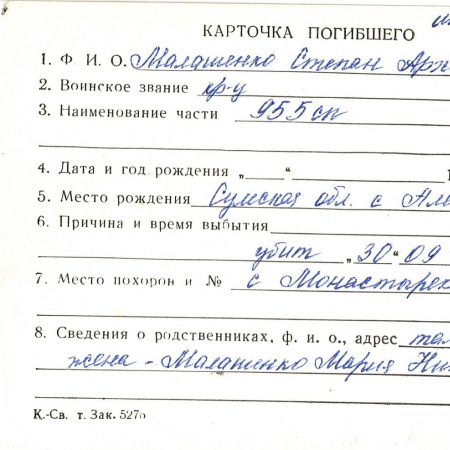 КАРТОЧКА ПОГИБШЕГО
1. Ф И. О. Малашенко Степан Арх
2. Воинское звание кр-ц
3. Наименование части 955 сп
4. Дата и год рождения „ “ 1
5. Место рождения Сумская обл. с Але
6. Причина и время выбытия
убит „30“ 09
7. Место похорон и № с Монастырек
8. Сведения о родственниках, ф. и о., адрес там
жена - Малашенко Мария Ник
К.-Св. т. Зак. 527о